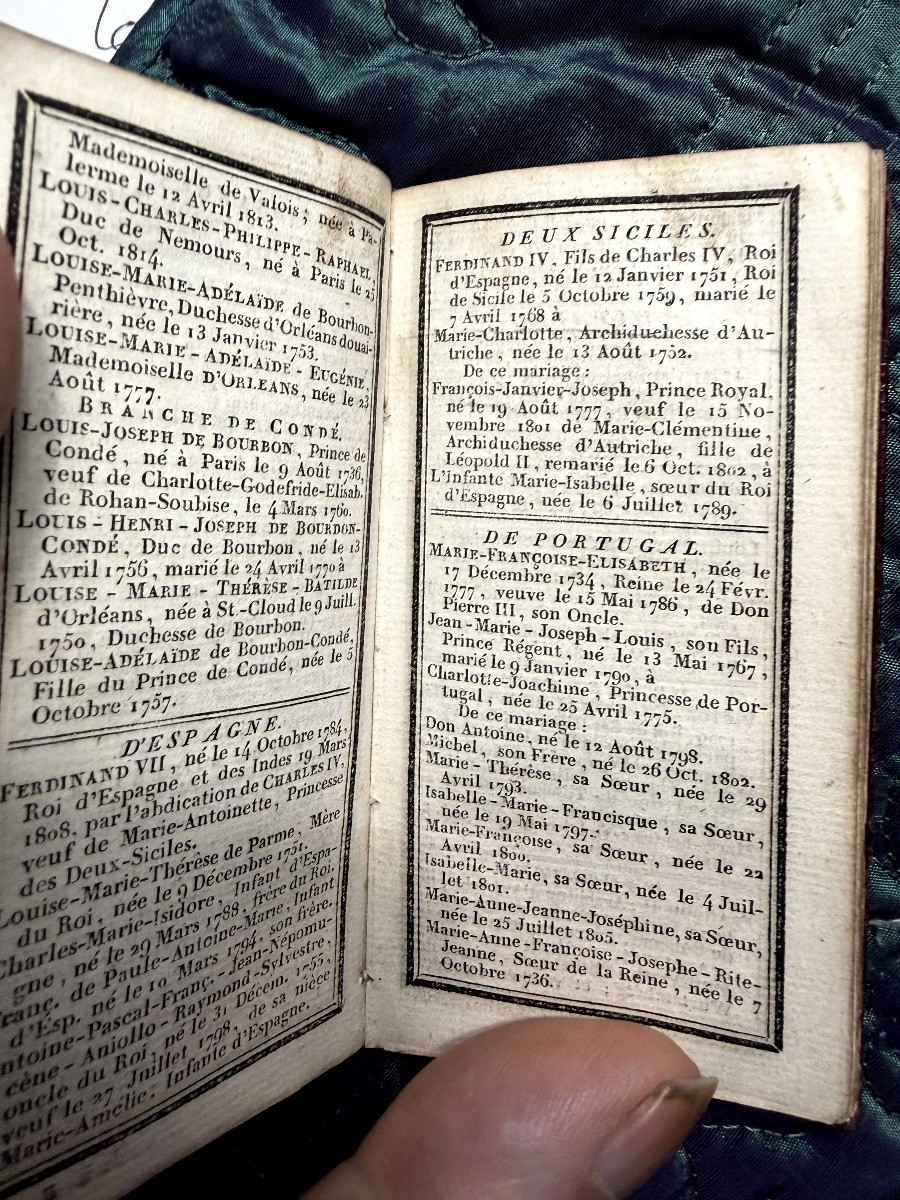 Mademoiselle de Valois; née à Pa-
lerme le 12 Avril 1813.
LOUIS-CHARLES-PHILIPPE-RAPHAEL,
Duc de Nemours, né à Paris le 25
Oct. 1814.
LOUISE-MARIE-ADÉLAÏDE de Bourbon-
Penthièvre, Duchesse d'Orléans douai-
rière, née le 13 Janvier 1753.
LOUISE-MARIE-ADÉLAÏDE-EUGÉNIE,
Mademoiselle D'ORLEANS, née le 23
Août 1777.
BRANCHE DE CONDÉ.
LOUIS-JOSEPH DE BOURBON, Prince de
Condé, né à Paris le 9 Août 1736,
veuf de Charlotte-Godefride-Elisab.
de Rohan-Soubise, le 4 Mars 1760.
LOUIS-HENRI-JOSEPH DE BOURBON-
CONDÉ, Duc de Bourbon, né le 13
Avril 1756, marié le 24 Avril 1770 à
LOUISE-MARIE-THÉRÈSE-BATILDE
d'Orléans, née à St.-Cloud le 9 Juill.
1750, Duchesse de Bourbon.
LOUISE-ADÉLAÏDE de Bourbon-Condé,
Fille du Prince de Condé, née le 5
Octobre 1757.
D'ESPAGNE.
FERDINAND VII, né le 14 Octobre 1784,
Roi d'Espagne et des Indes 19 Mars
1808. par l'abdication de CHARLES IV,
veuf de Marie-Antoinette, Princesse
des Deux-Siciles.
Louise-Marie-Thérèse de Parme, Mère
du Roi, née le 9 Décembre 1751.
Charles-Marie-Isidore, Infant d'Espa-
gne, né le 29 Mars 1788, frère du Roi.
Franç. de Paule-Antoine-Marie, Infant
d'Esp. né le 10 Mars 1794, son frère.
ntoine-Pascal-Franç.-Jean-Népomu-
cène-Aniollo-Raymond-Sylvestre,
oncle du Roi, né le 31 Décem. 1755,
veuf le 27 Juillet 1798, de sa nièce
Marie-Amélie, Infante d'Espagne.
DEUX SICILES.
FERDINAND IV, Fils de Charles IV, Roi
d'Espagne, né le 12 Janvier 1751, Roi
de Sicile le 5 Octobre 1759, marié le
7 Avril 1768 à
Marie-Charlotte, Archiduchesse d'Au-
triche, née le 13 Août 1752.
De ce mariage:
François-Janvier-Joseph, Prince Royal,
né le 19 Août 1777, veuf le 15 No-
vembre 1801 de Marie-Clémentine,
Archiduchesse d'Autriche, fille de
Léopold II, remarié le 6 Oct. 1802, à
L'infante Marie-Isabelle, sœur du Roi
d'Espagne, née le 6 Juillet 1789.
DE PORTUGAL.
MARIE-FRANÇOISE-ELISABETH, née le
17 Décembre 1734, Reine le 24 Févr.
1777, veuve le 15 Mai 1786, de Don
Pierre III, son Oncle.
Jean-Marie-Joseph-Louis, son Fils,
Prince Régent, né le 13 Mai 1767,
marié le 9 Janvier 1790, à
Charlotte-Joachime, Princesse de Por-
tugal, née le 25 Avril 1775.
De ce mariage:
Don Antoine, né le 12 Août 1798.
Michel, son Frère, né le 26 Oct. 1802.
Marie-Thérèse, sa Sœur, née le 29
Avril 1793.
Isabelle-Marie-Francisque, sa Sœur,
née le 19 Mai 1797.
Marie-Françoise, sa Sœur, née le 22
Avril 1800.
Isabelle-Marie, sa Sœur, née le 4 Juil-
let 1801.
Marie-Anne-Jeanne-Joséphine, sa Sœur,
née le 25 Juillet 1805.
Marie-Anne-Françoise-Josephe-Rite-
Jeanne, Sœur de la Reine, née le 7
Octobre 1736.